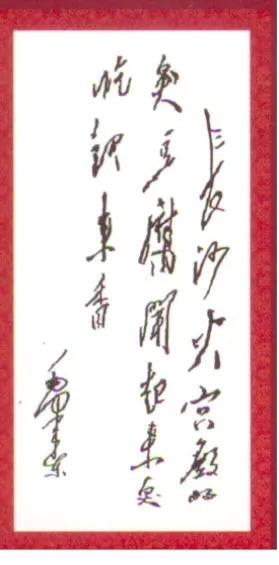 长沙火宫殿的
臭豆腐闻起来臭
吃起来香
毛泽东